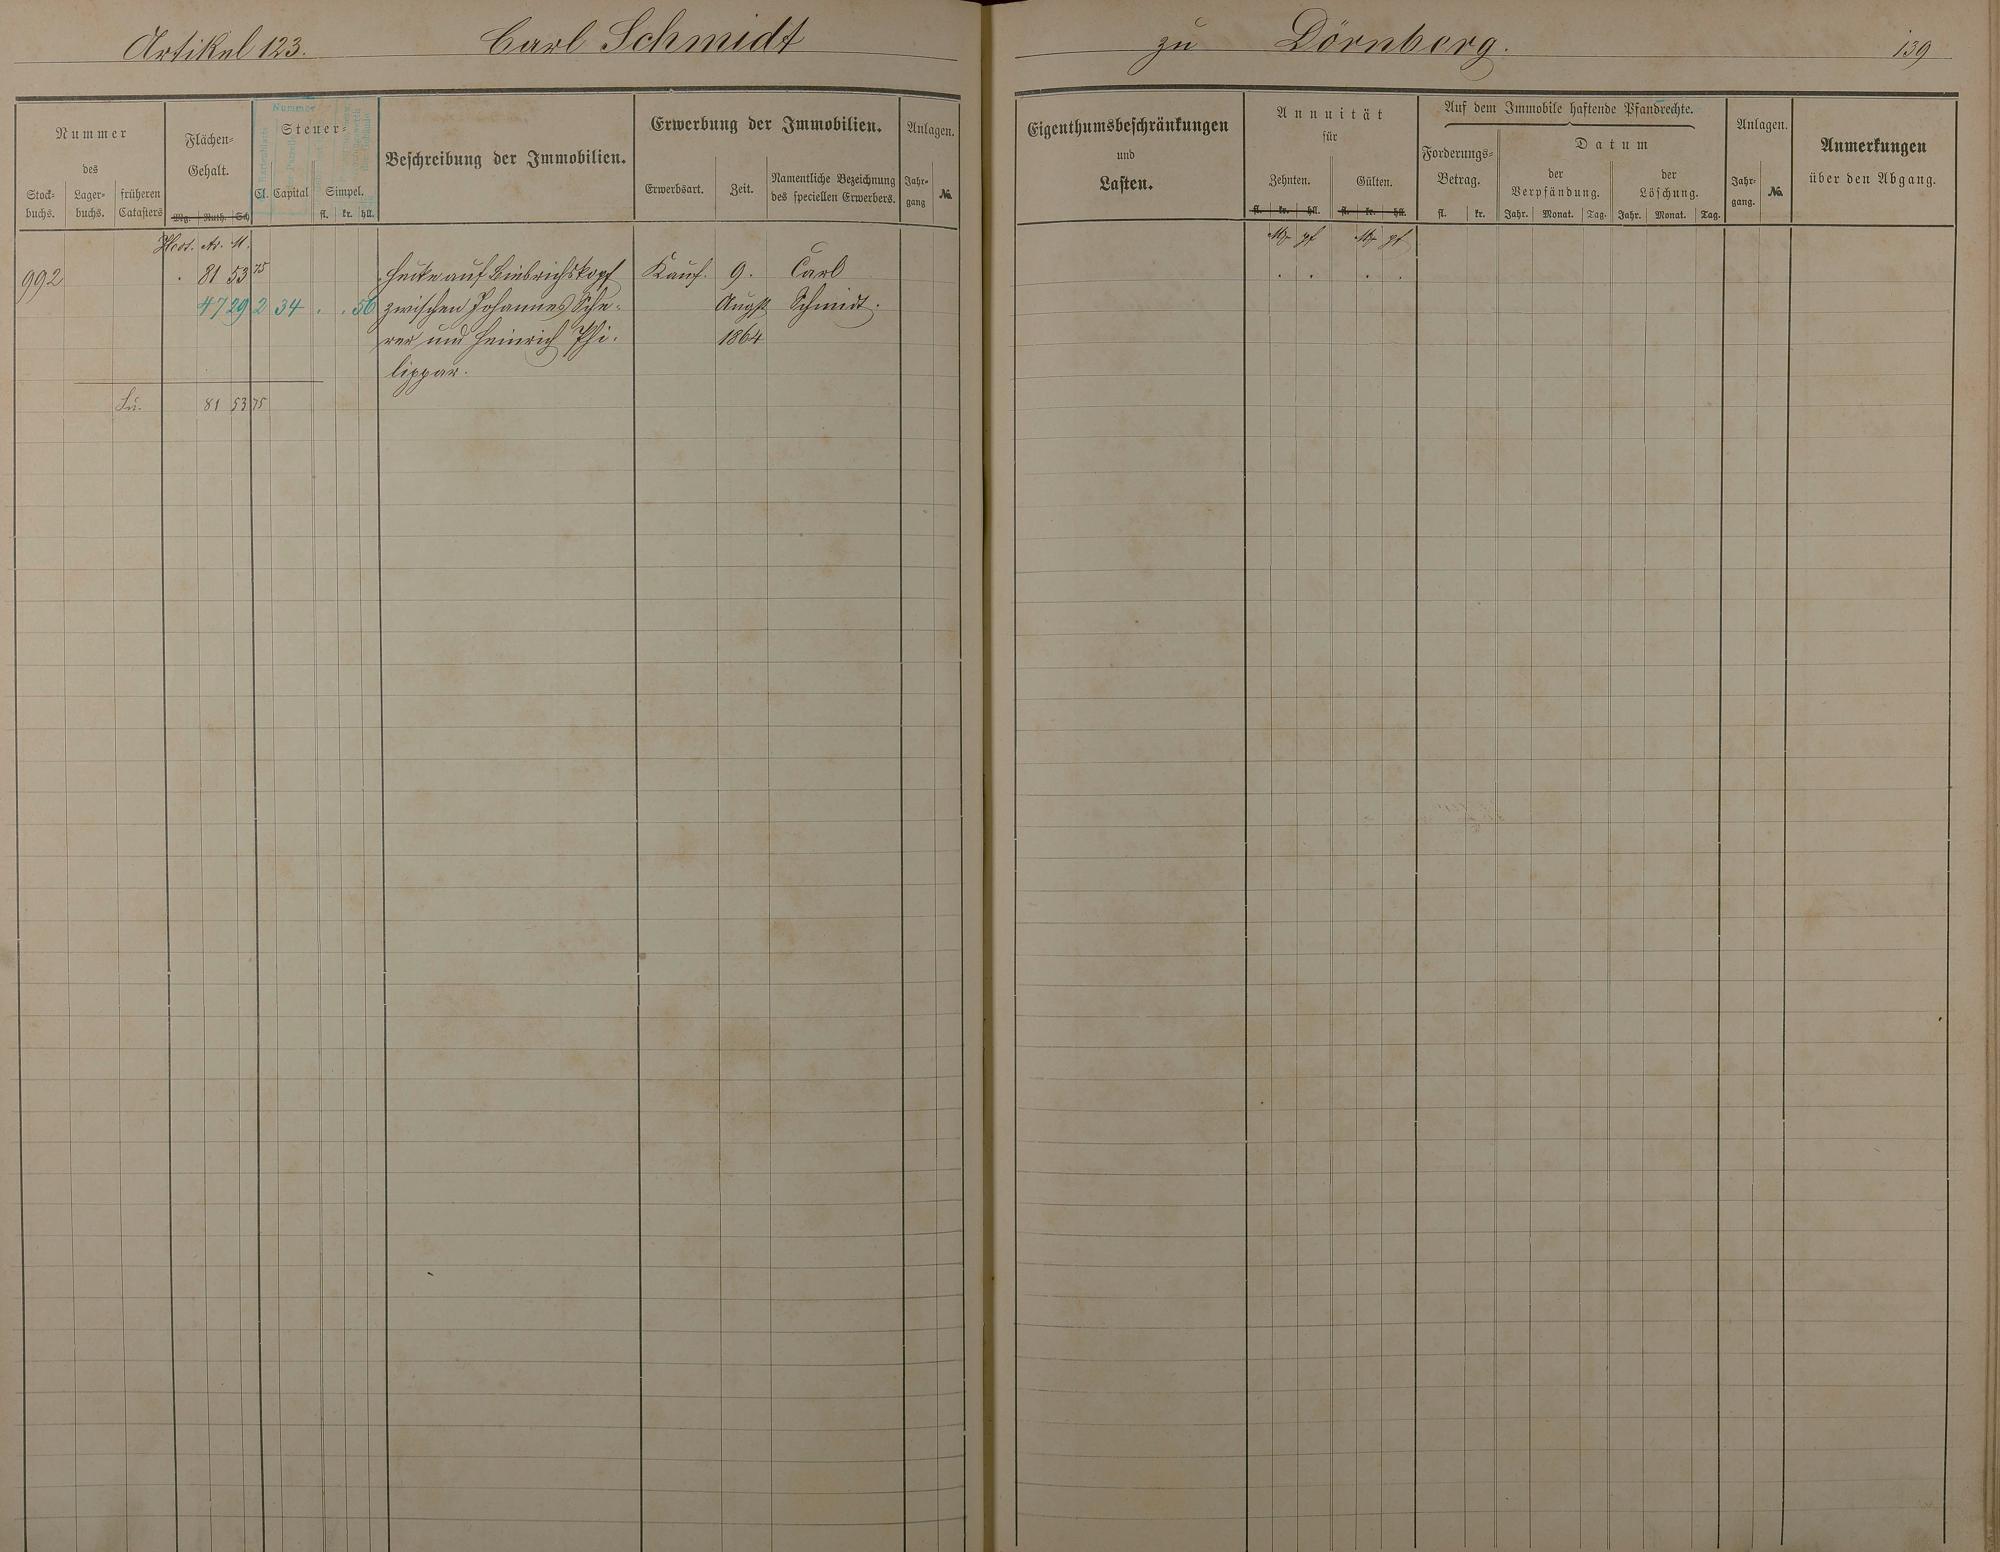 Artikel 123. Carl Schmidt zu Dörnberg. 139
Nummer
des
Stock-
buchs.
Lager-
buchs.
früheren
Catasters
Flächen-
Gehalt.
Mg. Ruth. Sch
Nummer
Steuer-
Cl. Capital
Simpel.
fl. kr. hll.
Beschreibung der Immobilien.
Erwerbung der Immobilien.
Erwerbsart.
Zeit.
Namentliche Bezeichnung
des speciellen Erwerbers.
Anlagen.
Jahr-
gang
No.
Eigenthumsbeschränkungen
und
Lasten.
Annuität
für
Zehnten.
Gülten.
fl. kr. hll. fl. kr. hll.
Auf dem Immobile haftende Pfandrechte.
Forderungs-
Betrag.
fl. kr.
Datum
der
Verpfändung.
Jahr. Monat. Tag.
der
Löschung.
Jahr. Monat. Tag.
Anlagen.
Jahr-
gang.
No.
Anmerkungen
über den Abgang.
Hect. Ar. M. Mk pf Mk pf
992 . 81 53 75 Hecke auf Biebrichskopf Kauf. 9. Carl . . . .
47 29 2 34 . . 56 zwischen Johannes Sche- Augst Schmidt.
rer und Heinrich Phi- 1864
lippar.
Su. 81 53 75